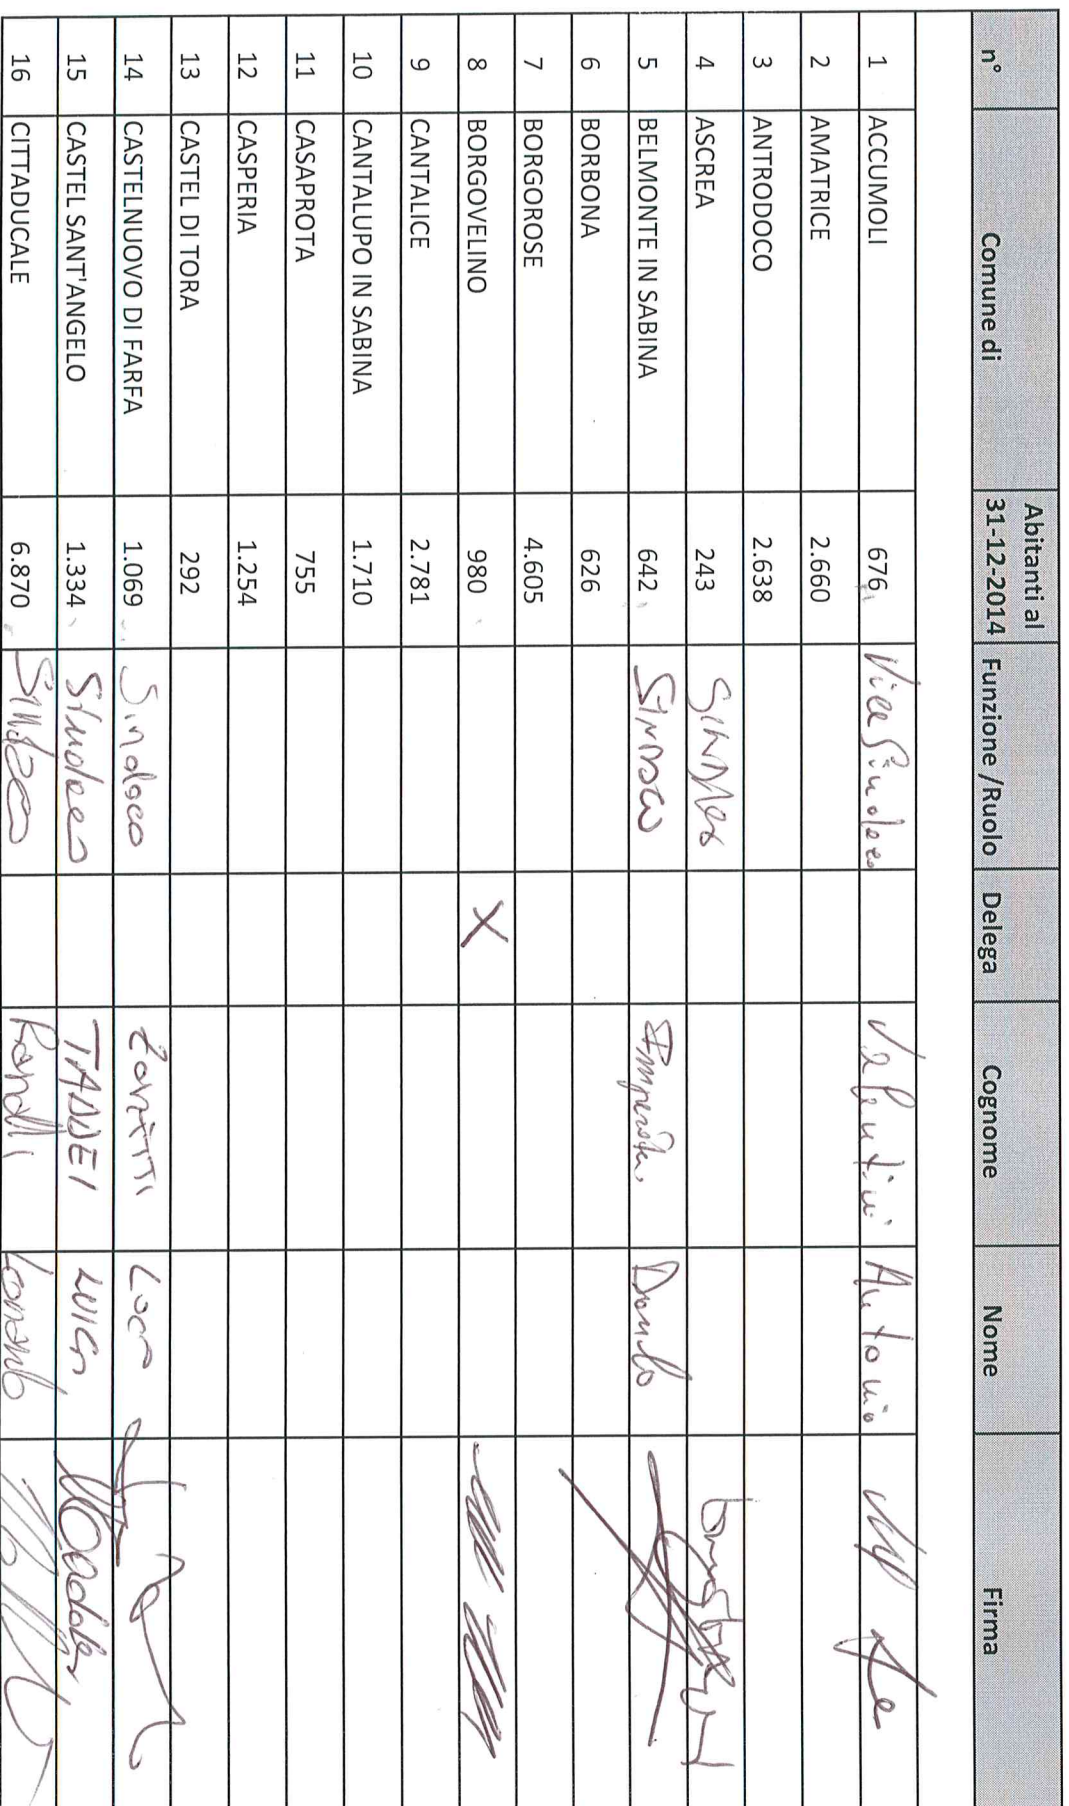 n° Comune di Abitanti al 31-12-2014 Funzione /Ruolo Delega Cognome Nome Firma
1 ACCUMOLI 676 Vice Sindaco Valentini Antonio
2 AMATRICE 2.660
3 ANTRODOCO 2.638
4 ASCREA 243 SINDACO
5 BELMONTE IN SABINA 642 SINDACO Imperatori Danilo
6 BORBONA 626
7 BORGOROSE 4.605
8 BORGOVELINO 980 X
9 CANTALICE 2.781
10 CANTALUPO IN SABINA 1.710
11 CASAPROTA 755
12 CASPERIA 1.254
13 CASTEL DI TORA 292
14 CASTELNUOVO DI FARFA 1.069 Sindaco Luca
15 CASTEL SANT'ANGELO 1.334 Sindaco TADDEI LUIGI
16 CITTADUCALE 6.870 Sindaco Ranalli Leonardo